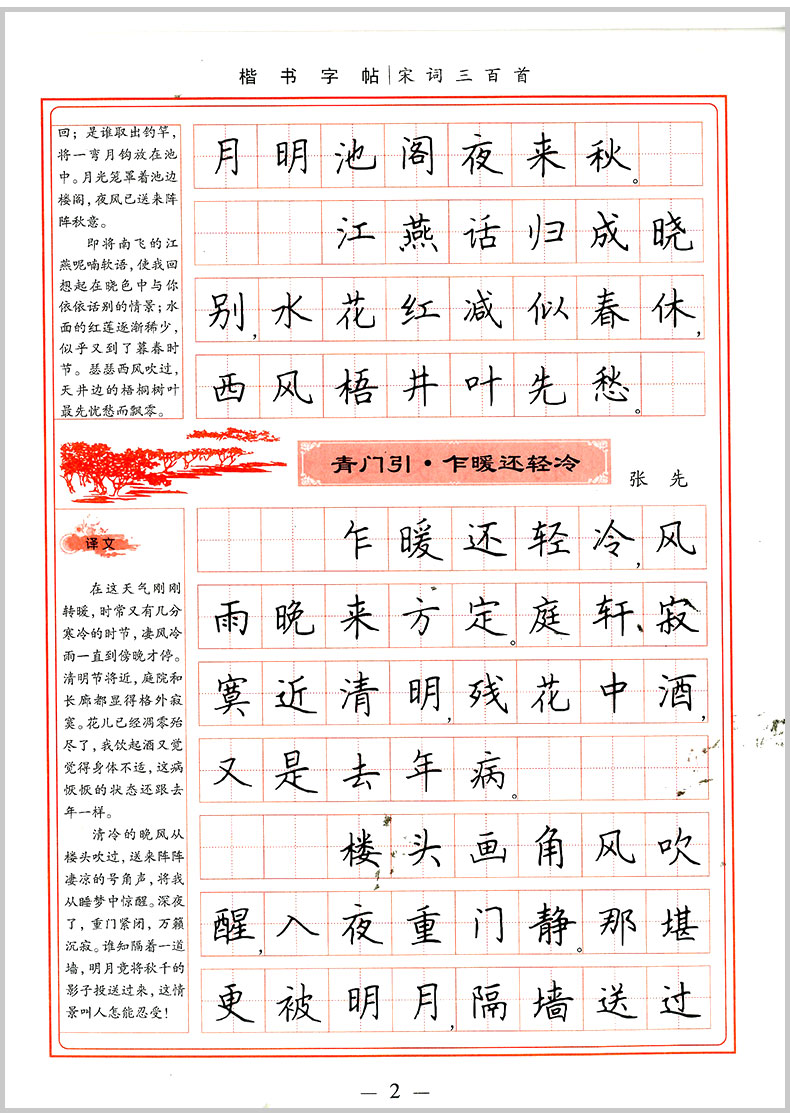 楷书字帖|宋词三百首
回；是谁取出钓竿，
将一弯月钩放在池
中。月光笼罩着池边
楼阁，夜风已送来阵
阵秋意。
即将南飞的江
燕呢喃软语，使我回
想起在晓色中与你
依依话别的情景；水
面的红莲逐渐稀少，
似乎又到了暮春时
节。瑟瑟西风吹过，
天井边的梧桐树叶
最先忧愁而飘零。
月明池阁夜来秋。
江燕话归成晓
别，水花红减似春休，
西风梧井叶先愁。
青门引·乍暖还轻冷
张先
译文
在这天气刚刚
转暖，时常又有几分
寒冷的时节，凄风冷
雨一直到傍晚才停。
清明节将近，庭院和
长廊都显得格外寂
寞。花儿已经凋零殆
尽了，我饮起酒又觉
觉得身体不适，这病
恹恹的状态还跟去
年一样。
清冷的晚风从
楼头吹过，送来阵阵
凄凉的号角声，将我
从睡梦中惊醒。深夜
了，重门紧闭，万籁
沉寂。谁知隔着一道
墙，明月竟将秋千的
影子投送过来，这情
景叫人怎能忍受！
乍暖还轻冷，风
雨晚来方定。庭轩、寂
寞近清明，残花中酒，
又是去年病。
楼头画角风吹
醒，入夜重门静。那堪
更被明月，隔墙送过
— 2 —